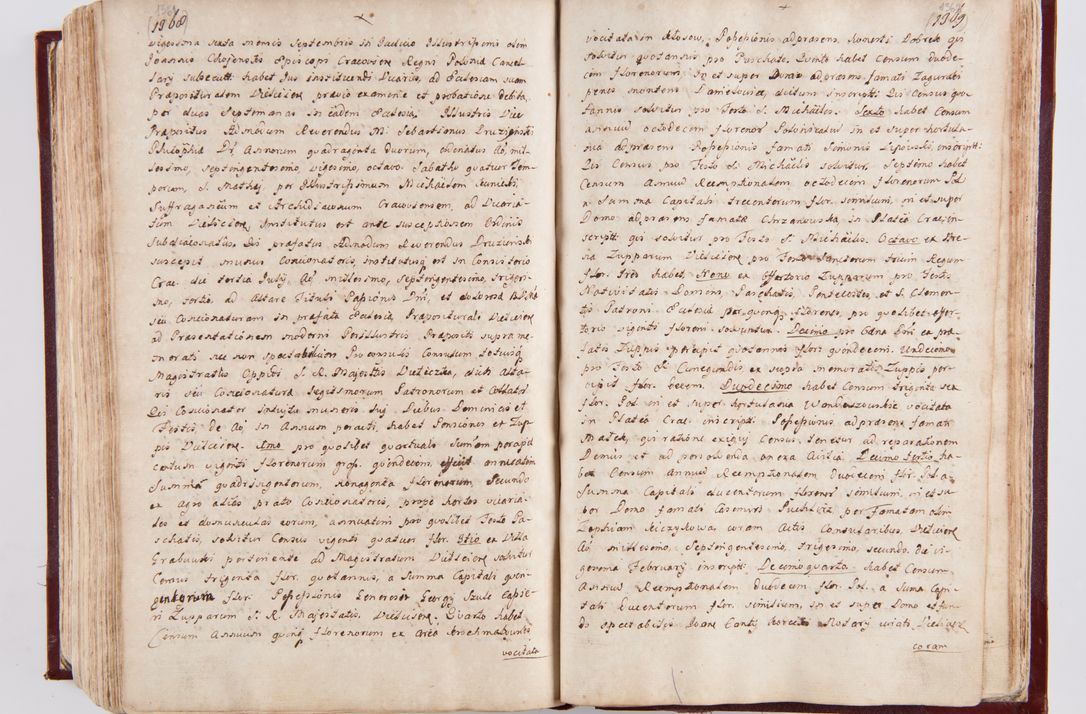 (1368)
vigesima sexta mensis Septembris in Judicio Illustrissimi olim
Joannis Episcopi Cracovien Regni Poloniæ Cancel
habet Jus instituendi Vicarios, ad Ecclesiam suam
Præposituralem Vieliciens prævio examine et probatione debita
per duas Septimanas in eadem Ecclesia, Illustris Vir
Præpositus Reverendus M. Sebastianus Druzynski
Philosophiæ Dr Annorum quadraginta duorum, ordinatus Ao mil
lesimo, septingentesimo, vigesimo, octavo. Sabatho quatuor Tem
porum, S. Mathæi, per Illustrissimum Michaelem
Suffraganeum et Archidiaconum Cracoviensem, ad Vicaria
tum Vieliciens Institutus est ante susceptionem Ordinis
Subdiaconatus. Qui præfatus Reverendus Druzinski
suscepit munus Concionatoris, institutusq est in Consistorio
Crac. die tertia Julij Ao millesimo, Septingentesimo, trigesi
mo, tertio, ad Altare Tituli Passionis Dni, et
seu Concionaturam in præfata Ecclesia Præpositurali Vieliciens
ad Præsentationem moderni Perillustris Præpositi supra me
morati nec non spectabilium Proconsulis Consulum totiusq
Magistratus Oppidi S. R. Majestatis Vieliczka, dicti Alta
ris seu Concionaturæ legitimorum Patronorum et Collator
Qui Concionator Intuitu muneris sui, Diebus Dominicis et
Festis de Ao in Annum peracti, habet Pensiones ex Zup
pis Vieliciens. Imo pro quolibet quartuale Sumam
centum viginti florenorum gros. quindecim annuatim
Summa quadringentorum, nonaginta florenorum, Secundo
ex Agro alias prato Concionatoris, prope hortos vicaria
les et domunculas eorum, annuatim pro quolibet Festo Pa
schatis, solvitur Census viginti quatuor flor. 3tio ex Villa
Grabuwki pertinente ad Magistratum Vieliciens solvitur
Census triginta flor. quotannis, a Summa Capitali quin
gentorum flor. Possessionis Generosi Georgij Szulc
Zupparum S. R. Majestatis, Vieliciens. Quarto habet
Censum Annuum quinq florenorum ex Area
vocitata
(1369)
vocitatam Possessionis ad præsens, Honesti Dobrek qui
solvitur quotannis pro Paschate. Quinto habet Censum duode
cim florenorum, in et super Domo ad præsens famati Zagurski
penes montem dictum inscriptt: Qui Census quo
tannis solvitur pro Festo S. Michaelis. Sexto habet Censum
Annuum octodecem florenor Polonicalium in et super hortula
nia ad præsens Possessionis famati Simonis inscriptt:
Qui Census pro Festo S. Michaelis solvitur, Septimo habet
Censum Annuum Reemptionalem octodecem florenorum Pol
a Summa Capitali trecentorum flor. similium, in et super
Domo ad præsens famatæ Chrzanowska in Platea Crac. in
scriptt qui solvitur pro Festo S. Michaelis. Octavo ex The
sia Zupparum Vieliciens pro Festo Sanctorum trium Regum
flor. tres habet, Nono ex Offertorio Zupparum pro Festis
Nativitatis Domini, Paschatis, Pentecostes et S. Clemen
tis Patroni Ecclesiæ per quinq florenos, pro quolibet offer
torio viginti floreni solvuntur. Decimo pro Cœna Dni ex præ
fatis Zuppis percipit quotannis flor: quindecem. Undecimo
pro Festo S. Cunegundis ex supra memoratis Zuppis per
cipit flor. decem. Duodecimo habet Censum triginta sex
flor. Pol. in et super hortulania vocitata
in Platea Crac. inscript. Possessionis ad præsens famati
Matek, qui ratione exigui Census tenetur ad reparationem
Domus et ad persolvenda onera Civilia. Decimo tertio ha
bet Censum Annuum Reemptionalem Duodecem flor. Pol. a
Summa Capitali ducentorum florenor similium, in et su
per Domo famati Casimiri per famatam olim
Zophiam coram Actis Consularibus Vieliciens
Ao millesimo, Septingentesimo, trigesimo, secundo. Die vi
gesima February inscriptt. Decimo quarto. habet Censum
Annuum Reemptionalem duodecem flor. Pol. a Suma Capi
tali ducentorum flor. similium, in et super Domo et fun
do spectabilis Joan: Canty Notarij
coram